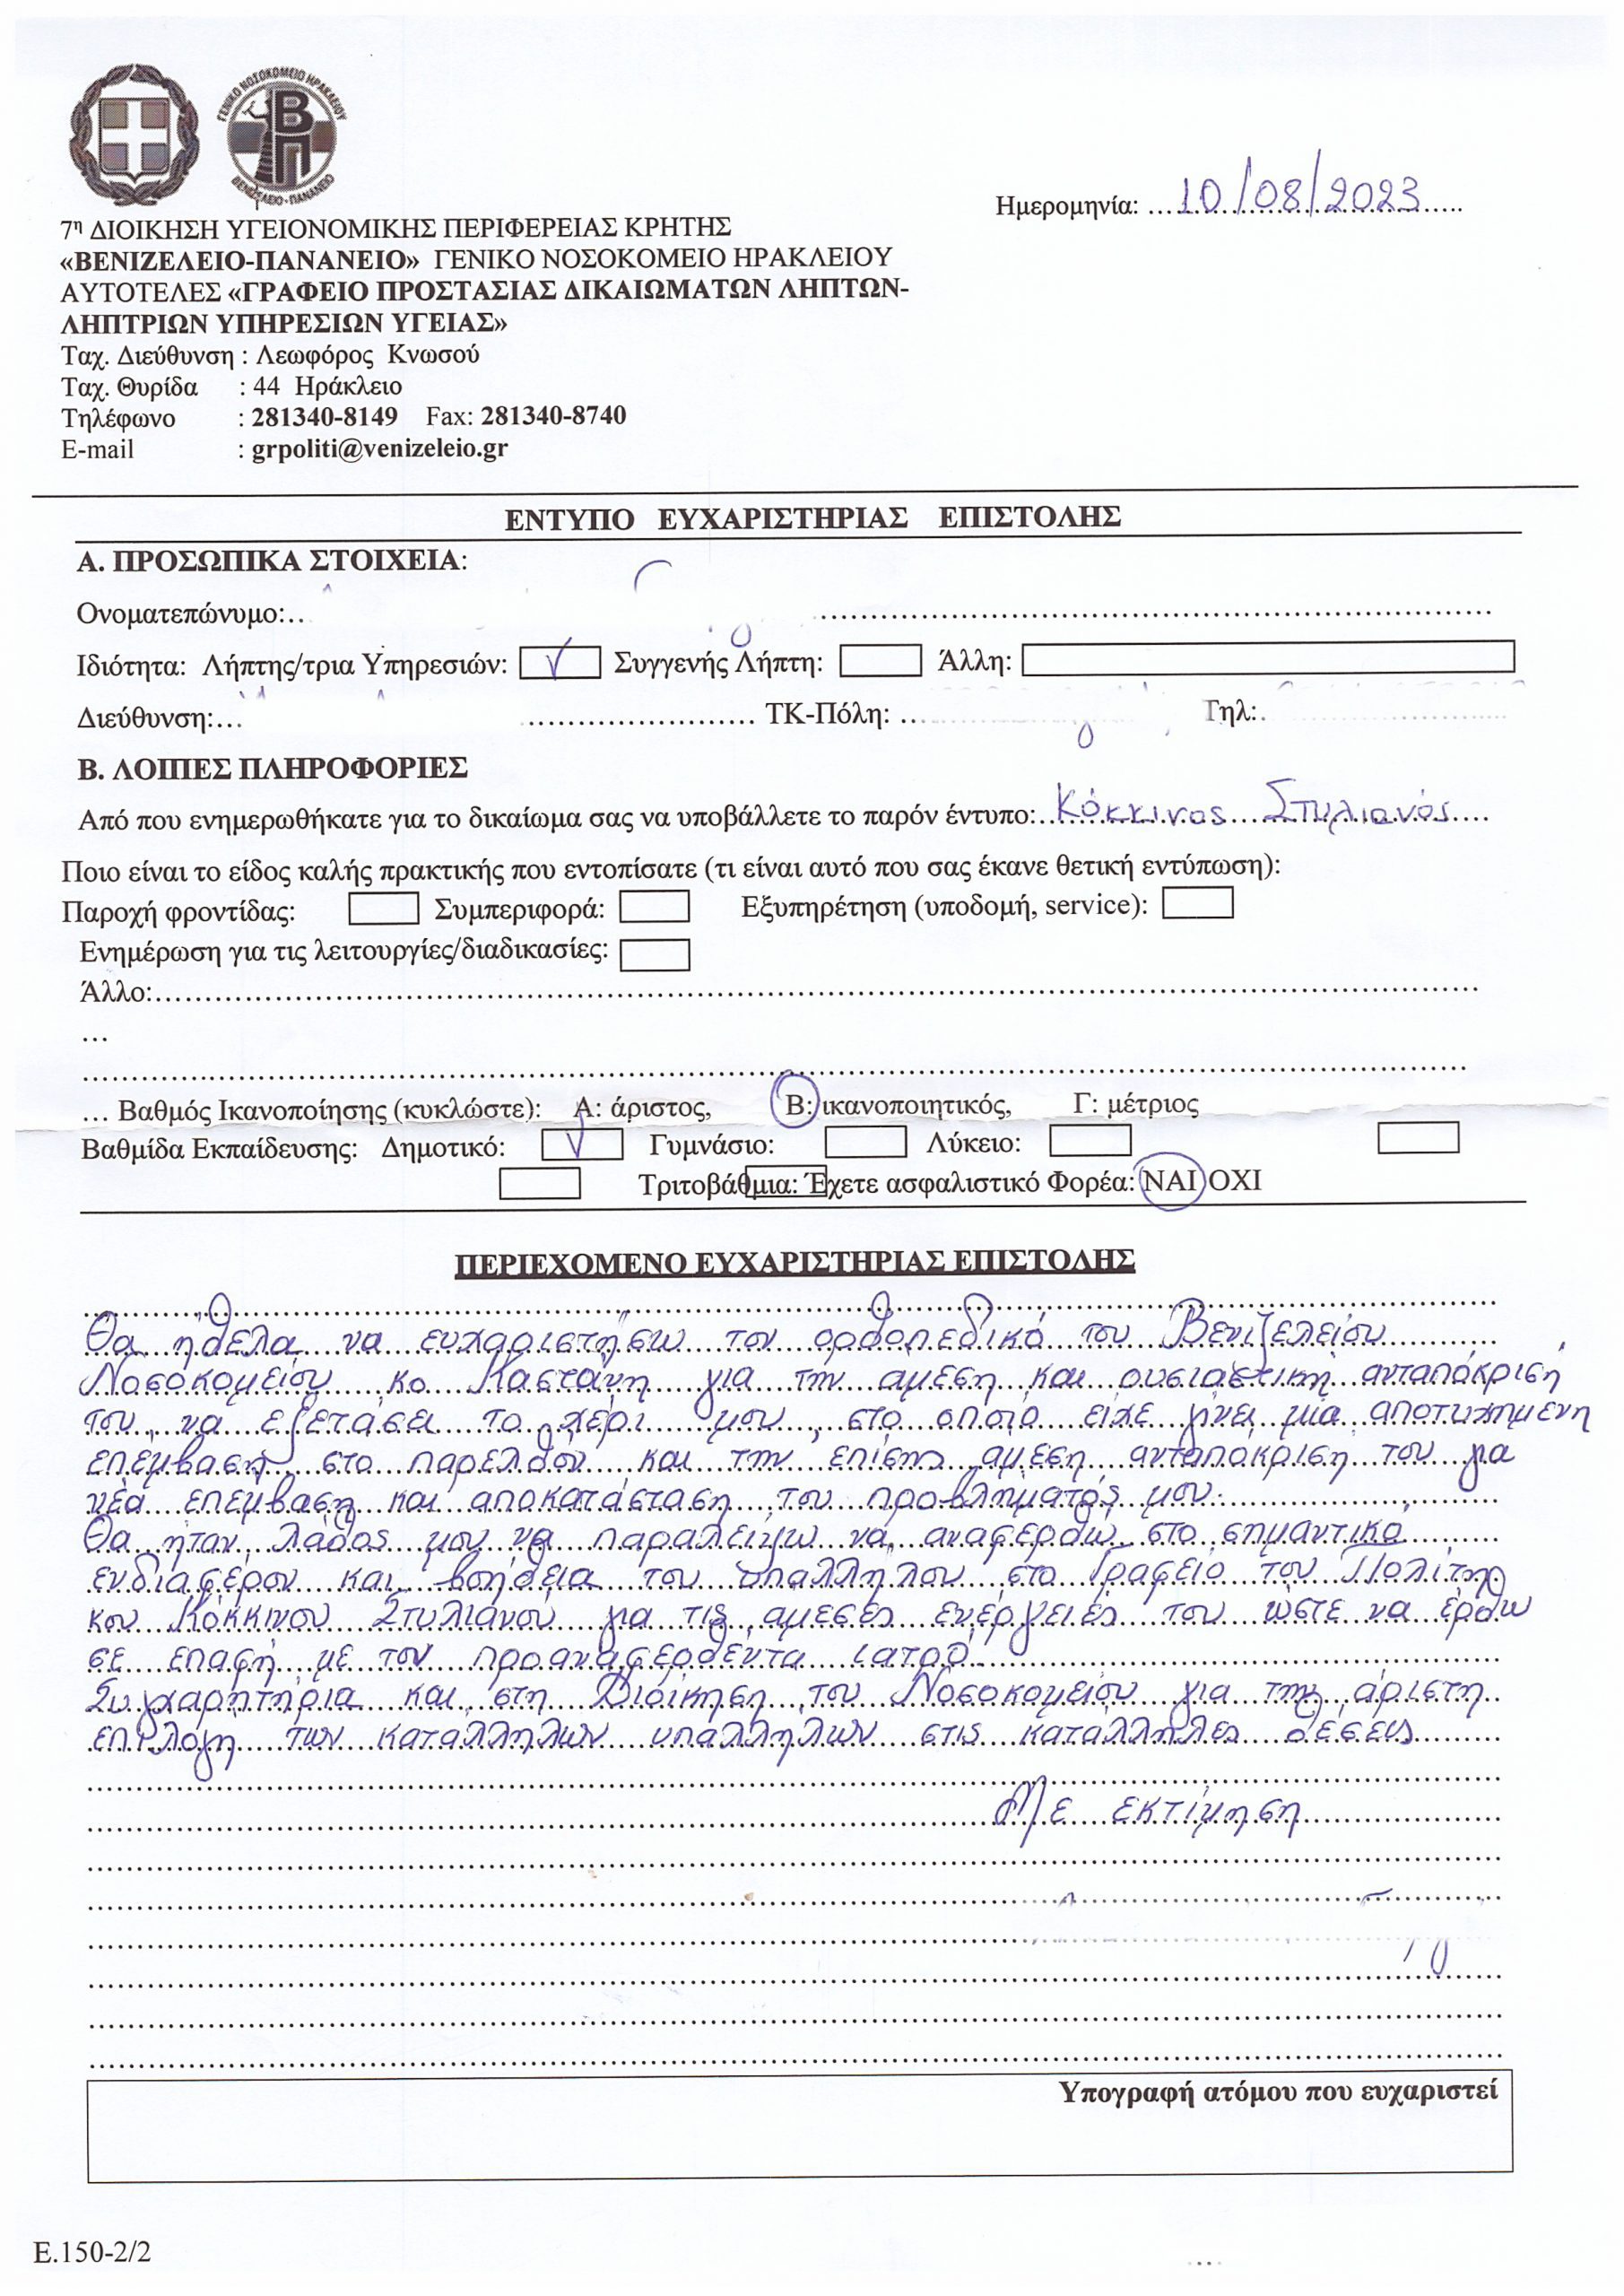 ΓΕΝΙΚΟ ΝΟΣΟΚΟΜΕΙΟ ΗΡΑΚΛΕΙΟΥ
ΒΠ
ΒΕΝΙΖΕΛΕΙΟ-ΠΑΝΑΝΕΙΟ
Ημερομηνία: 10/08/2023
7η ΔΙΟΙΚΗΣΗ ΥΓΕΙΟΝΟΜΙΚΗΣ ΠΕΡΙΦΕΡΕΙΑΣ ΚΡΗΤΗΣ
«ΒΕΝΙΖΕΛΕΙΟ-ΠΑΝΑΝΕΙΟ» ΓΕΝΙΚΟ ΝΟΣΟΚΟΜΕΙΟ ΗΡΑΚΛΕΙΟΥ
ΑΥΤΟΤΕΛΕΣ «ΓΡΑΦΕΙΟ ΠΡΟΣΤΑΣΙΑΣ ΔΙΚΑΙΩΜΑΤΩΝ ΛΗΠΤΩΝ-
ΛΗΠΤΡΙΩΝ ΥΠΗΡΕΣΙΩΝ ΥΓΕΙΑΣ»
Ταχ. Διεύθυνση : Λεωφόρος Κνωσού
Ταχ. Θυρίδα : 44 Ηράκλειο
Τηλέφωνο : 281340-8149 Fax: 281340-8740
E-mail : grpoliti@venizeleio.gr
ΕΝΤΥΠΟ ΕΥΧΑΡΙΣΤΗΡΙΑΣ ΕΠΙΣΤΟΛΗΣ
Α. ΠΡΟΣΩΠΙΚΑ ΣΤΟΙΧΕΙΑ:
Ονοματεπώνυμο:
Ιδιότητα: Λήπτης/τρια Υπηρεσιών: √ Συγγενής Λήπτη: Άλλη:
Διεύθυνση: ΤΚ-Πόλη: Τηλ:
Β. ΛΟΙΠΕΣ ΠΛΗΡΟΦΟΡΙΕΣ
Από που ενημερωθήκατε για το δικαίωμα σας να υποβάλλετε το παρόν έντυπο: Κόκκινος Στυλιανός
Ποιο είναι το είδος καλής πρακτικής που εντοπίσατε (τι είναι αυτό που σας έκανε θετική εντύπωση):
Παροχή φροντίδας: Συμπεριφορά: Εξυπηρέτηση (υποδομή, service):
Ενημέρωση για τις λειτουργίες/διαδικασίες:
Άλλο:
...
... Βαθμός Ικανοποίησης (κυκλώστε): Α: άριστος, Β: ικανοποιητικός, Γ: μέτριος
Βαθμίδα Εκπαίδευσης: Δημοτικό: √ Γυμνάσιο: Λύκειο:
Τριτοβάθμια: Έχετε ασφαλιστικό Φορέα: ΝΑΙ ΟΧΙ
ΠΕΡΙΕΧΟΜΕΝΟ ΕΥΧΑΡΙΣΤΗΡΙΑΣ ΕΠΙΣΤΟΛΗΣ
Θα ήθελα να ευχαριστήσω τον ορθοπεδικό του Βενιζελείου
Νοσοκομείου κο Καστάνη για την άμεση και ουσιαστική ανταπόκρισή
του, να εξετάσει το χέρι μου, στο οποίο είχε γίνει μία αποτυχημένη
επέμβαση στο παρελθόν και την επίσης άμεση ανταπόκριση του για
νέα επέμβαση και αποκατάσταση του προβλήματός μου.
Θα ήταν λάθος μου να παραλείψω να αναφερθώ στο σημαντικό
ενδιαφέρον και βοήθεια του υπαλλήλου στο Γραφείο του Πολίτη
κου Κόκκινου Στυλιανού για τις άμεσες ενέργειές του ώστε να έρθω
σε επαφή με τον προαναφερθέντα ιατρό
Συγχαρητήρια και στη Διοίκηση του Νοσοκομείου για την άριστη
επιλογή των κατάλληλων υπαλλήλων στις κατάλληλες θέσεις
Με εκτίμηση
Υπογραφή ατόμου που ευχαριστεί
Ε.150-2/2
...